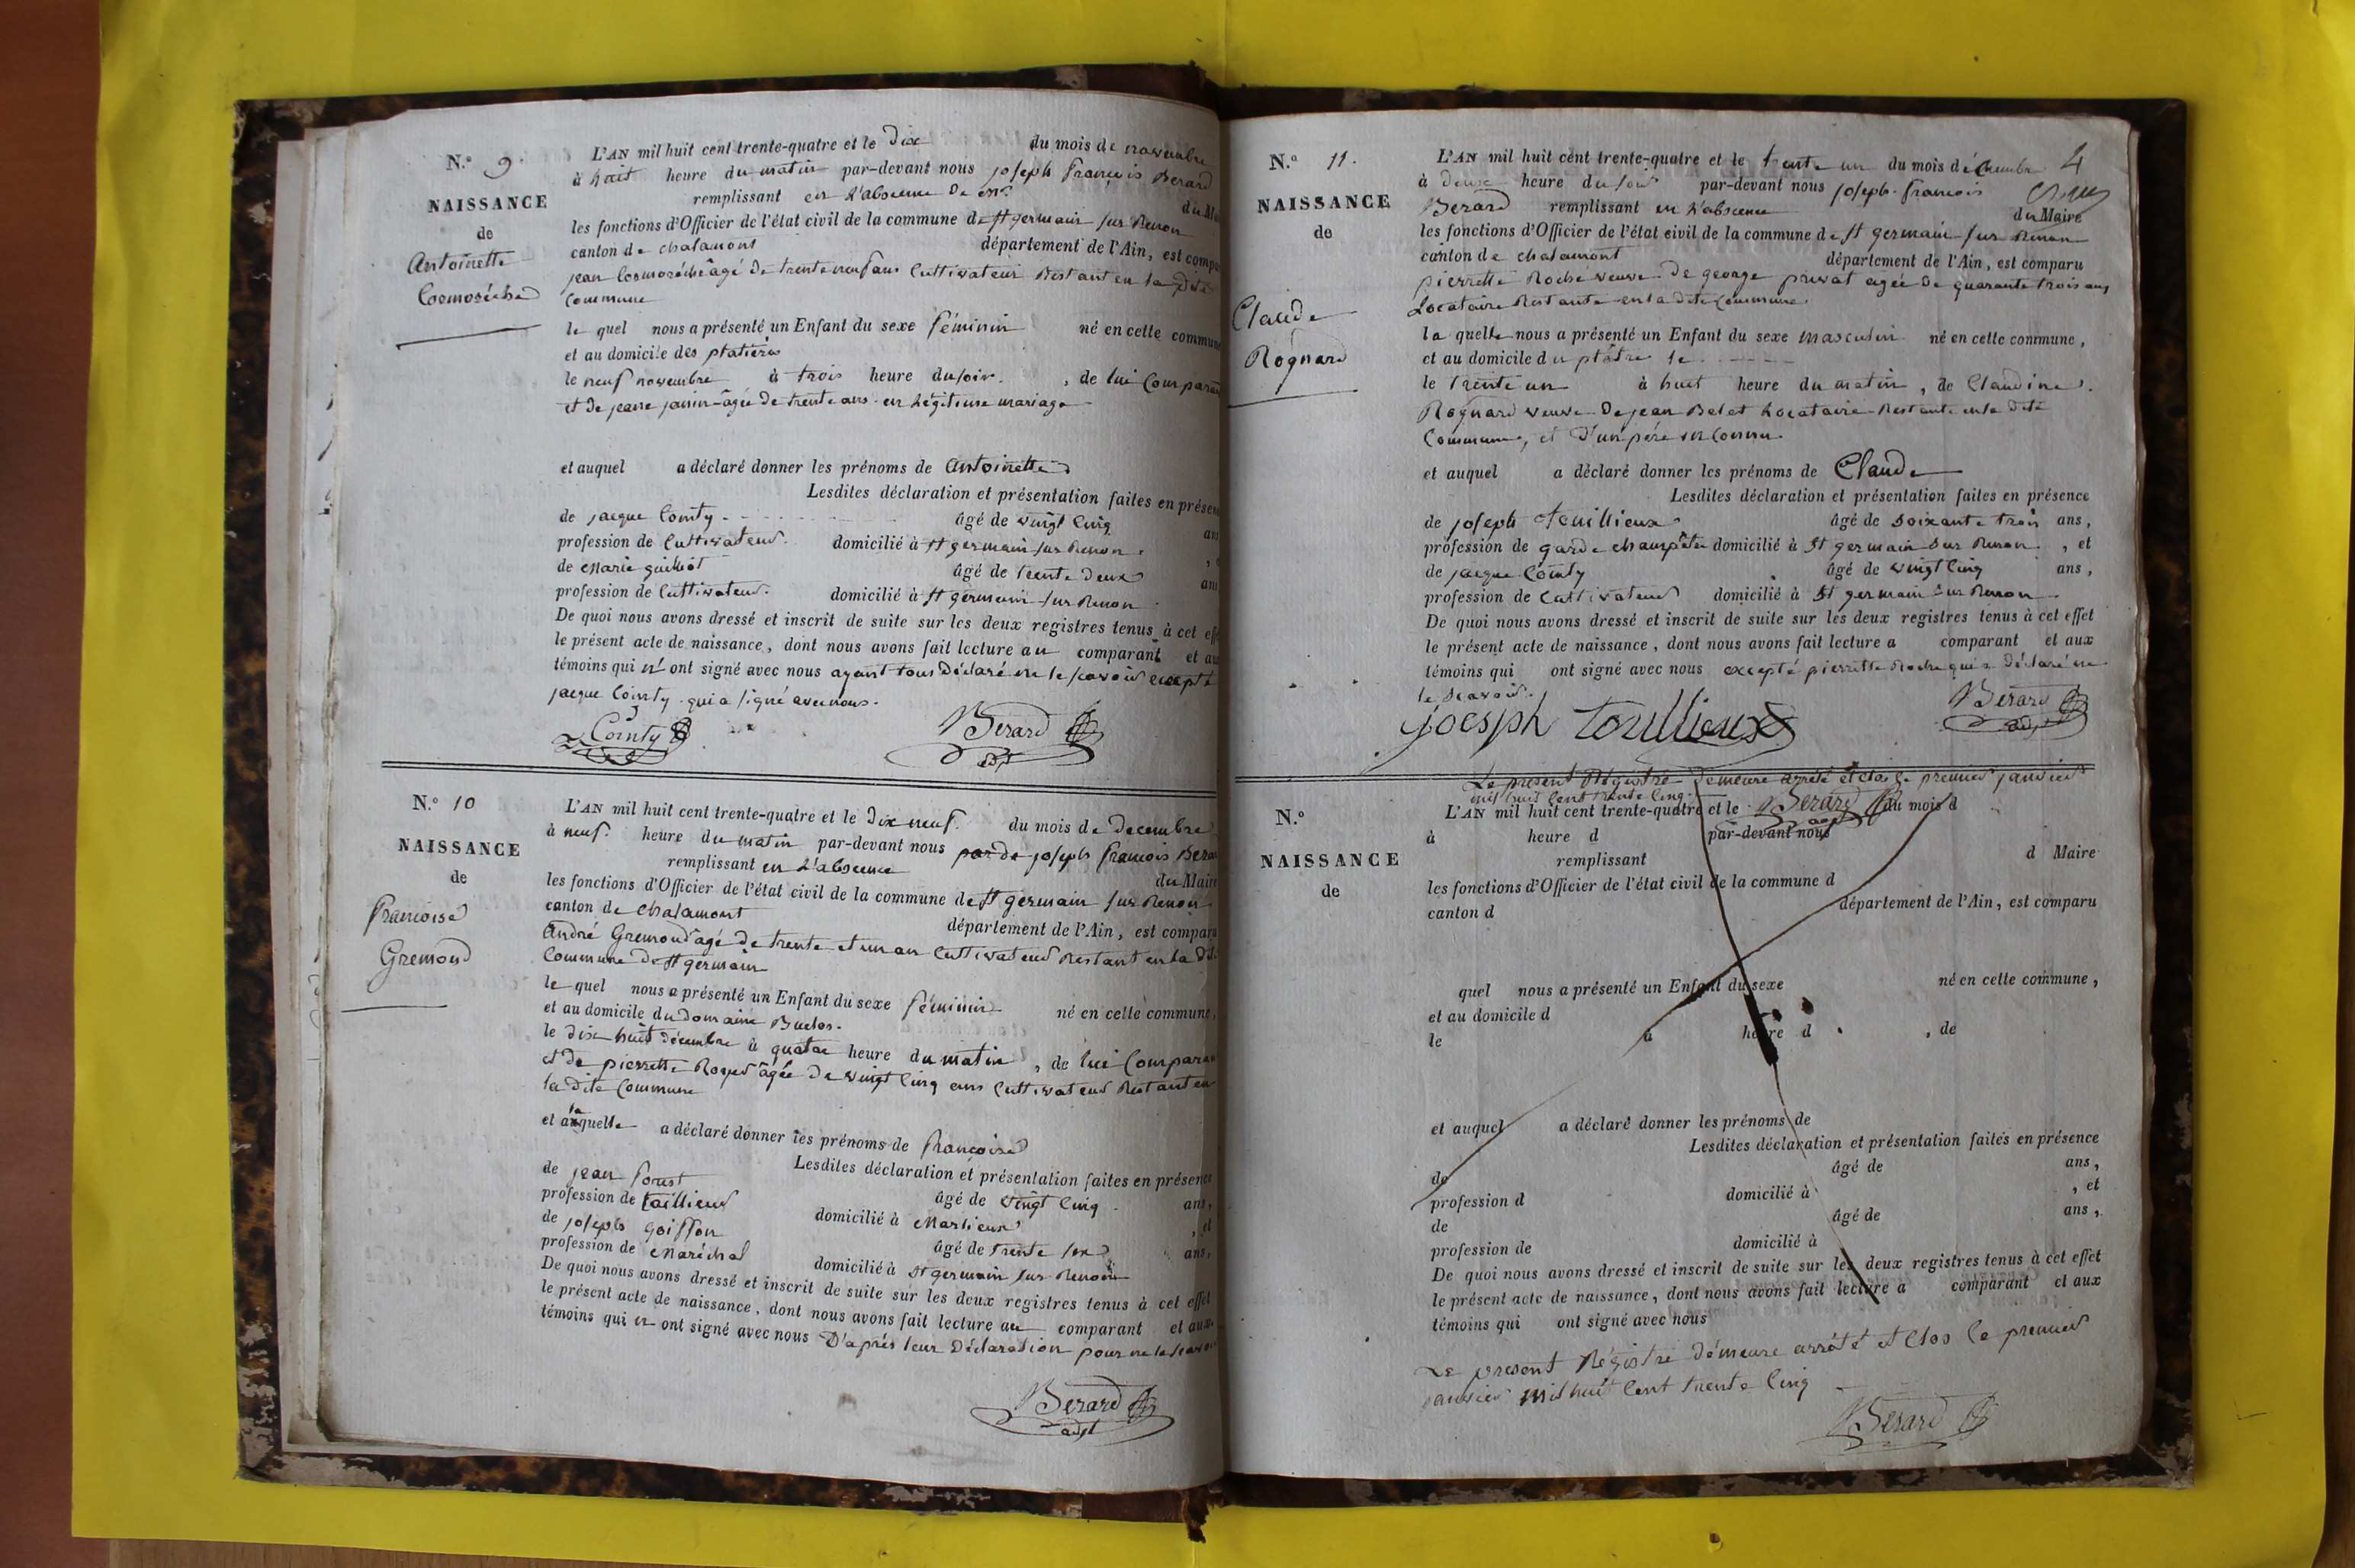 N.º 9.
NAISSANCE
de
Antoinette
Cormorèche
L'AN mil huit cent trente-quatre et le dix du mois de novembre
à huit heure du matin par-devant nous joseph françois Berard
remplissant en l'absence de mr du
les fonctions d'Officier de l'état civil de la commune de St germain sur Renon
canton de chalamont département de l'Ain, est
jean Cormorèche âgé de trente neuf ans Cultivateur Restant en la dite
Commune
le quel nous a présenté un Enfant du sexe féminin né en cette commune
et au domicile des platières
le neuf novembre à trois heure du soir. , de lui Comparant
et de jeanne janin âgée de trente ans en légitime mariage
et auquel a déclaré donner les prénoms de Antoinette
Lesdites déclaration et présentation faites en
de jacque Comty âgé de vingt Cinq
profession de Cultivateur. domicilié à St germain sur Renon.
de Marie guillot âgé de trente deux
profession de Cultivateur. domicilié à St germain sur Renon
De quoi nous avons dressé et inscrit de suite sur les deux registres tenus à cet
le présent acte de naissance, dont nous avons fait lecture au comparant et
témoins qui n' ont signé avec nous ayant tous déclaré ne le savoir excepté
jacque Comty qui a signé avec nous.
Comty Berard
adjt
N.º 10
NAISSANCE
de
francoise
Gremond
L'AN mil huit cent trente-quatre et le dix neuf. du mois de decembre
à neuf. heure du matin par-devant nous joseph françois
remplissant en l'absence du Maire
les fonctions d'Officier de l'état civil de la commune de St germain sur Renon
canton de Chalamont département de l'Ain, est comparu
André Gremond âgé de trente et un an Cultivateur Restant en la dite
Commune de St germain
le quel nous a présenté un Enfant du sexe féminin né en cette commune,
et au domicile du domaine
le dix huit décembre à quatre heure du matin , de lui Comparant
et de pierrette Royer âgée de vingt Cinq ans Cultivateur Restant en
la dite Commune
et a la quelle a déclaré donner les prénoms de francoise
Lesdites déclaration et présentation faites en présence
de jean forest âgé de vingt Cinq ans,
profession de tailleur domicilié à Marlieux , et
de joseph goiffon âgé de trente six ans,
profession de Maréchal domicilié à St germain sur Renon
De quoi nous avons dressé et inscrit de suite sur les deux registres tenus à cet effet
le présent acte de naissance, dont nous avons fait lecture au comparant et aux
témoins qui n ont signé avec nous D'après leur Déclaration pour ne le savoir
Berard
adjt
4
N.º 11.
NAISSANCE
de
Claude
Rognard
L'AN mil huit cent trente-quatre et le trente un du mois décembre
à deux heure du soir par-devant nous joseph francois
Berard remplissant en l'absence du Maire
les fonctions d'Officier de l'état civil de la commune de St germain sur Renon
canton de chalamont département de l'Ain, est comparu
pierrette Roche veuve de george privat agée de quarante trois ans
Locataire Restante en la dite Commune.
la quelle nous a présenté un Enfant du sexe masculin né en cette commune,
et au domicile du plâtre le
le trente un à huit heure du matin , de Claudine
Rognard veuve de jean Belet Locataire Restante en la dite
Commune, et d'un père inconnu.
et auquel a déclaré donner les prénoms de Claude
Lesdites déclaration et présentation faites en présence
de joseph âgé de soixante trois ans,
profession de garde champêtre domicilié à St germain sur Renon , et
de jacque Comty âgé de vingt Cinq ans,
profession de Cultivateur domicilié à St germain sur Renon.
De quoi nous avons dressé et inscrit de suite sur les deux registres tenus à cet effet
le présent acte de naissance, dont nous avons fait lecture a comparant et aux
témoins qui ont signé avec nous excepté pierrette Roche qui a déclaré ne
le scavoir.
joesph toullieux Berard
adj
Le present Régistre demeure arrété et clos le premier janvier
mil huit Cent trente Cinq.
N.º
NAISSANCE
de
L'AN mil huit cent trente-quatre et le Berard du mois d
à heure d par-devant nous
remplissant d Maire
les fonctions d'Officier de l'état civil de la commune d
canton d département de l'Ain, est comparu
quel nous a présenté un Enfant du sexe né en cette commune,
et au domicile d
le à heure d , de
et auquel a déclaré donner les prénoms de
Lesdites déclaration et présentation faites en présence
de âgé de ans,
profession d domicilié à , et
de âgé de ans,
profession de domicilié à
De quoi nous avons dressé et inscrit de suite sur les deux registres tenus à cet effet
le présent acte de naissance, dont nous avons fait lecture a comparant et aux
témoins qui ont signé avec nous
Le present Régistre démeure arrété et Clos le premier
janvier mil huit Cent trente Cinq
Berard